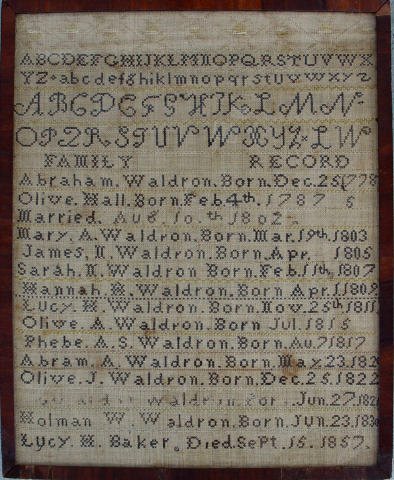 ABCDEFGHIJKLMNOPQRSTUVWX
YZ abcdefghiklmnopqrstuvwxyz
ABCDEFGHIJKLMN
OPQRSTUVWXYZ LW
FAMILY RECORD
Abraham. Waldron. Born. Dec. 25. 1778
Olive. Hall. Born. Feb. 4th. 1787
Married. Aug. 10.th 1802
Mary. A. Waldron. Born. Mar. 19th. 1803
James. N. Waldron. Born. Apr. 1805
Sarah. N. Waldron Born. Feb. 11th. 1807
Hannah. H. Waldron Born Apr. 1809
Lucy. H. Waldron. Born. Nov. 25th 1811
Olive. A. Waldron. Born Jul. 1815
Phebe. A.S. Waldron. Born. Au. 7. 1817
Abram. A. Waldron. Born. May. 23. 182
Olive. J. Waldron. Born. Dec. 25. 1822
Waldron. Born. Jun. 27. 182
Holman W. Waldron. Born. Jun. 23. 183
Lucy. H. Baker. Died. Sept. 15. 1857.